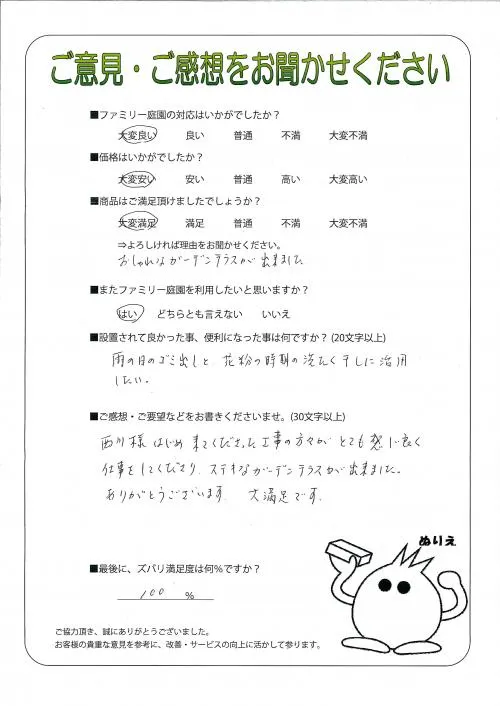 ご意見・ご感想をお聞かせください
■ファミリー庭園の対応はいかがでしたか？
大変良い 良い 普通 不満 大変不満
■価格はいかがでしたか？
大変安い 安い 普通 高い 大変高い
■商品はご満足頂けましたでしょうか？
大変満足 満足 普通 不満 大変不満
⇒よろしければ理由をお聞かせください。
おしゃれなガーデンテラスが出来ました
■またファミリー庭園を利用したいと思いますか？
はい どちらとも言えない いいえ
■設置されて良かった事、便利になった事は何ですか？(20文字以上)
雨の日のゴミ出しと、花粉の時期の洗たく干しに活用
したい。
■ご感想・ご要望などをお書きくださいませ。(30文字以上)
西川様はじめ来てくださった工事の方々がとても感じ良く
仕事をしてくださり、ステキなガーデンテラスが出来ました。
ありがとうございます。大満足です。
ぬりえ
■最後に、ズバリ満足度は何%ですか？
100 %
ご協力頂き、誠にありがとうございました。
お客様の貴重な意見を参考に、改善・サービスの向上に活かして参ります。